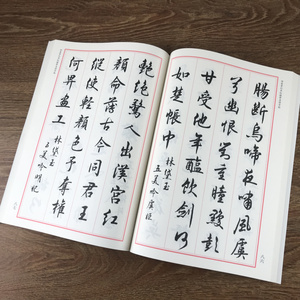 腸斷烏啼夜嘯風虞
兮幽恨對重瞳黥彭
甘受他年醢飲劍何
如楚帳中 林黛玉
五美吟虞姬
絕艷驚人出漢宮紅
顏命薄古今同君王
縱使輕顏色予奪權
何畀畫工 林黛玉
五美吟明妃